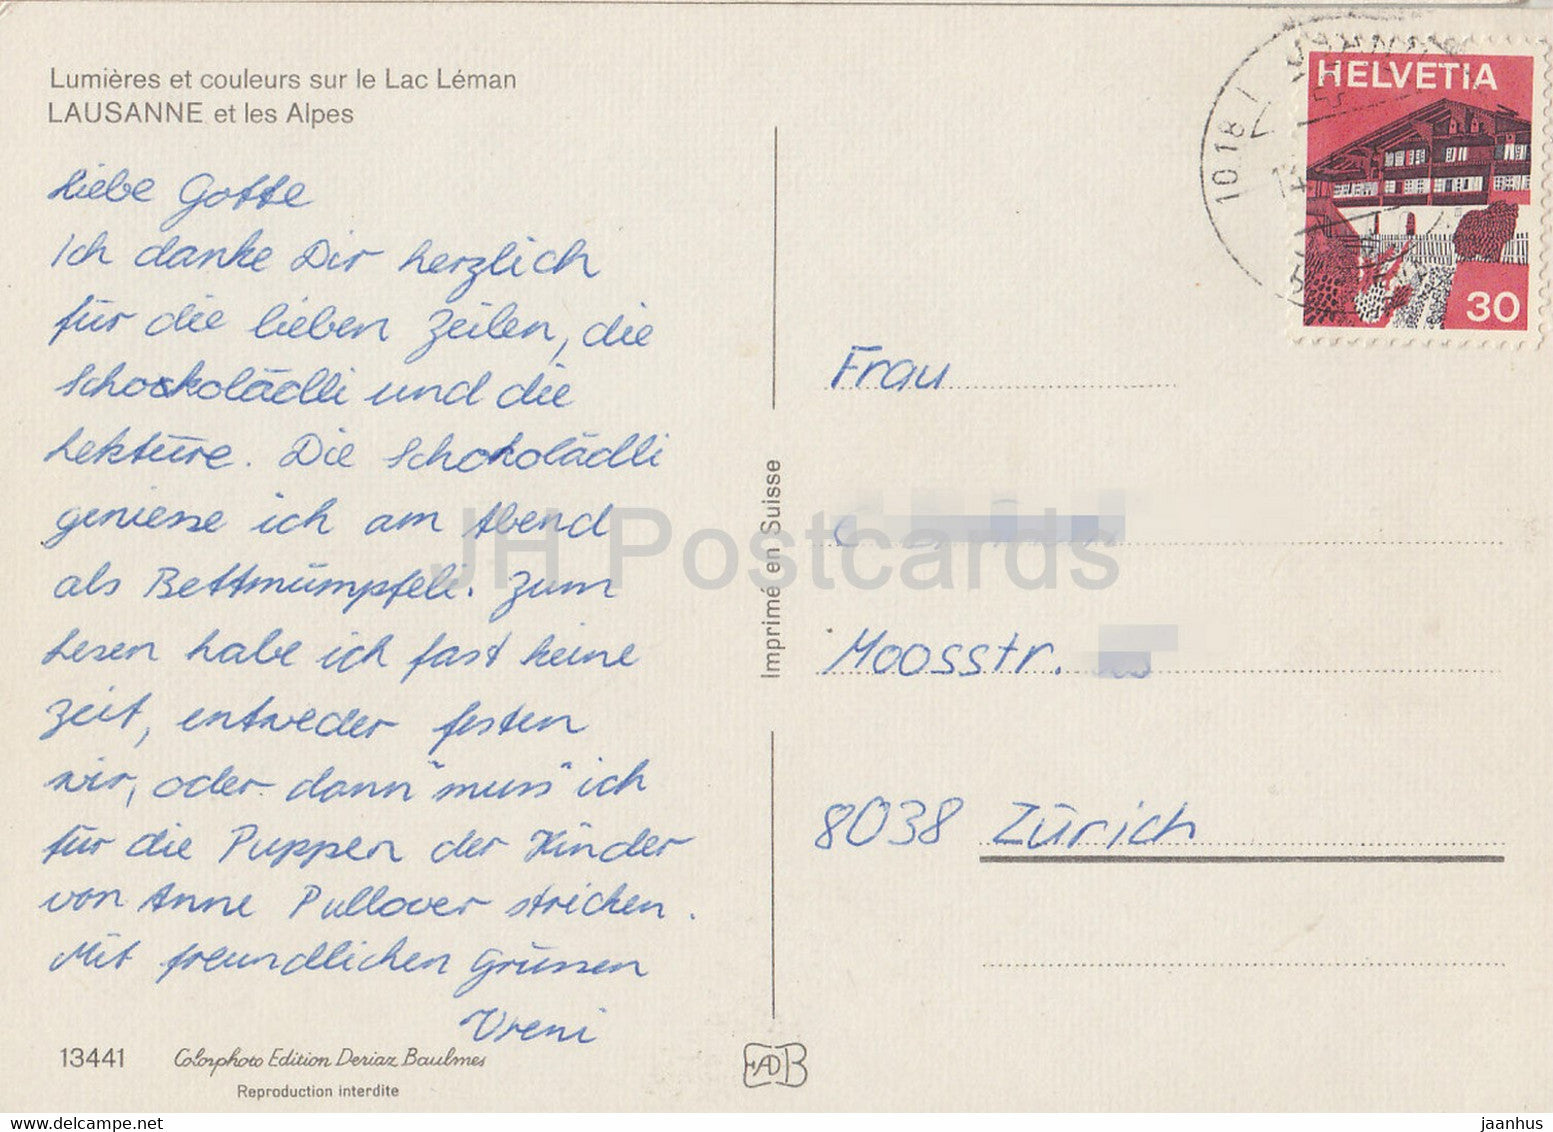 Lumières et couleurs sur le Lac Léman
LAUSANNE et les Alpes
Liebe Gotte
Ich danke Dir herzlich
für die lieben Zeilen, die
Schockolädli und die
Lektüre. Die Schokolädli
geniesse ich am Abend
als Bettmümpfeli. Zum
Lesen habe ich fast keine
Zeit, entweder festen
wir, oder dann "muss" ich
für die Puppen der Kinder
von Anne Pullover stricken.
Mit freundlichen Grüssen
Vreni
13441 Colorphoto Edition Deriaz Baulmes
Reproduction interdite
Imprimé en Suisse
EADB
1018
HELVETIA
30
Frau
Moosstr.
8038 Zürich
JH Postcards
jaanhus
www.delcampe.net